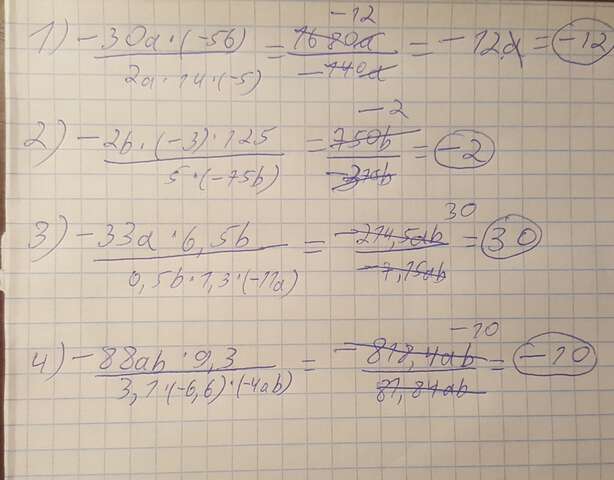 1) -30a·(-56) / 2a·14·(-5) = 1680a / -140a -12 = -12a = -12
2) -2b·(-3)·125 / 5·(-75b) = 750b / -375b -2 = -2
3) -33a·6,5b / 0,5b·1,3·(-11a) = -214,5ab / -7,15ab 30 = 30
4) -88ab·9,3 / 3,1·(-6,6)·(-4ab) = -818,4ab / 81,84ab -10 = -10